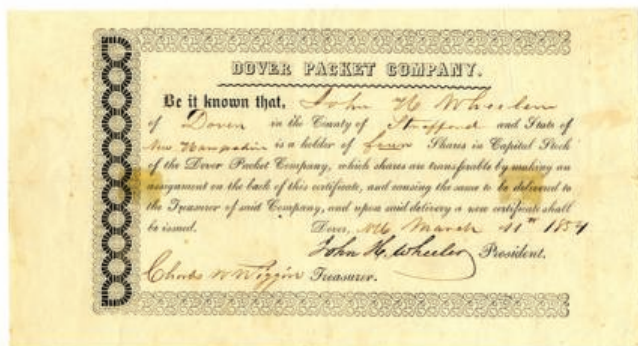 DOVER PACKET COMPANY.
Be it known that, John H Wheeler
of Dover in the County of Strafford and State of
New Hampshire is a holder of four Shares in Capital Stock
of the Dover Packet Company, which shares are transferable by making an
assignment on the back of this certificate, and causing the same to be delivered to
the Treasurer of said Company, and upon said delivery a new certificate shall
be issued. Dover, NH March 11th 1854
John H. Wheeler President.
Charles W Wiggin Treasurer.